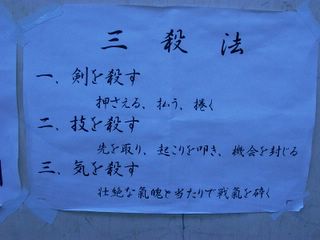 三殺法
一、剣を殺す
押さえる、払う、捲く
二、技を殺す
先を取り、起こりを叩き、機会を封じる
三、気を殺す
壮絶な氣魄と当たりで戦氣を砕く